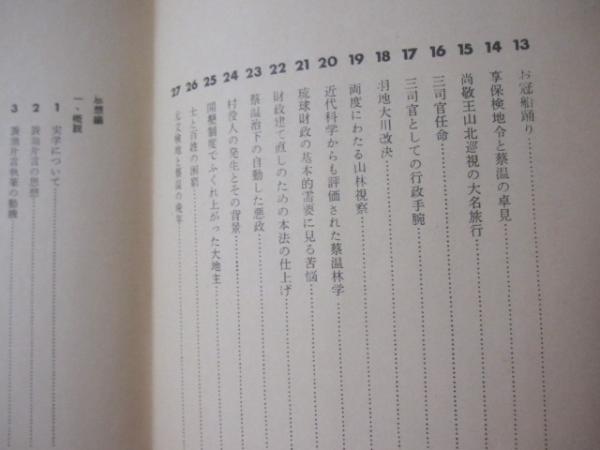 13 お冠船踊り
14 享保検地令と蔡温の卓見
15 尚敬王山北巡視の大名旅行
16 三司官任命
17 三司官としての行政手腕
18 羽地大川改決
19 両度にわたる山林視察
20 近代科学からも評価された蔡温林学
21 琉球財政の基本的需要に見る苦悩
22 財政建て直しのための本法の仕上げ
23 蔡温治下の自動した悪政
24 村役人の発生とその背景
25 開墾制度でふくれ上がった大地主
26 士と百姓の困窮
27 元文検地と蔡温の晩年
一、概説
1 実学について
2 簑翁片言の思想
3 簑翁片言執筆の動機